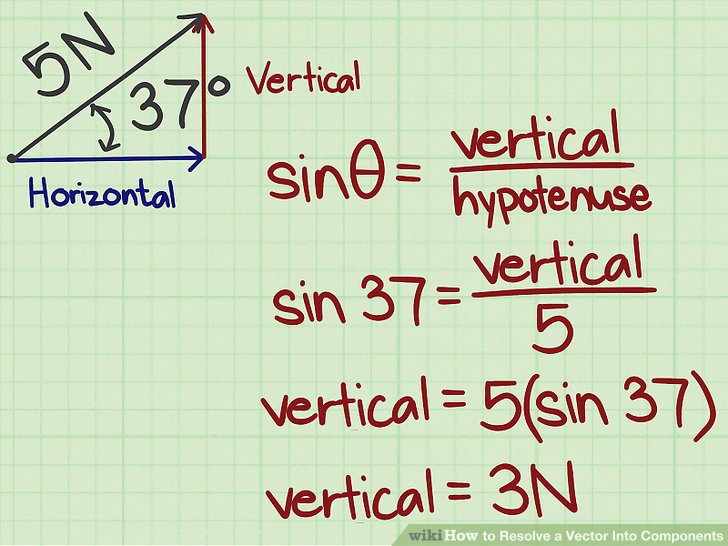 5N
37°
Vertical
Horizontal
sinθ = vertical / hypotenuse
sin 37 = vertical / 5
vertical = 5(sin 37)
vertical = 3N
wikiHow to Resolve a Vector Into Components